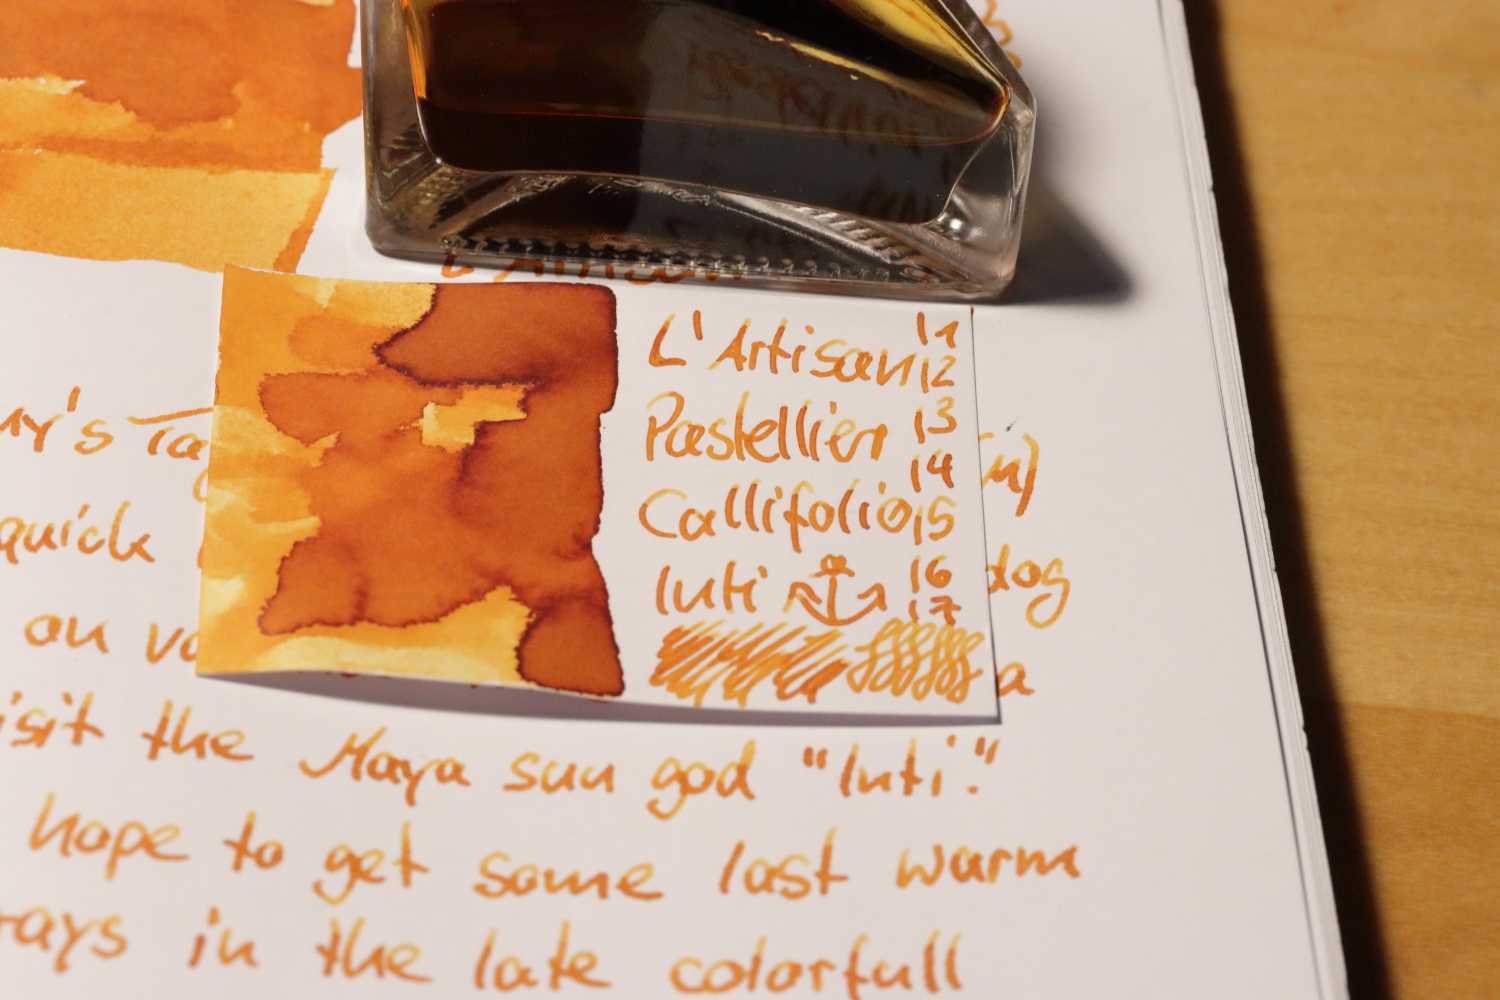 L'Artisan
L'Artisan 11
12
Pastellier 13
14
Callifolio 15
Inti 16
17
quick dog
on a
the Maya sun god "Inti."
hope to get some last warm
rays in the late colorfull